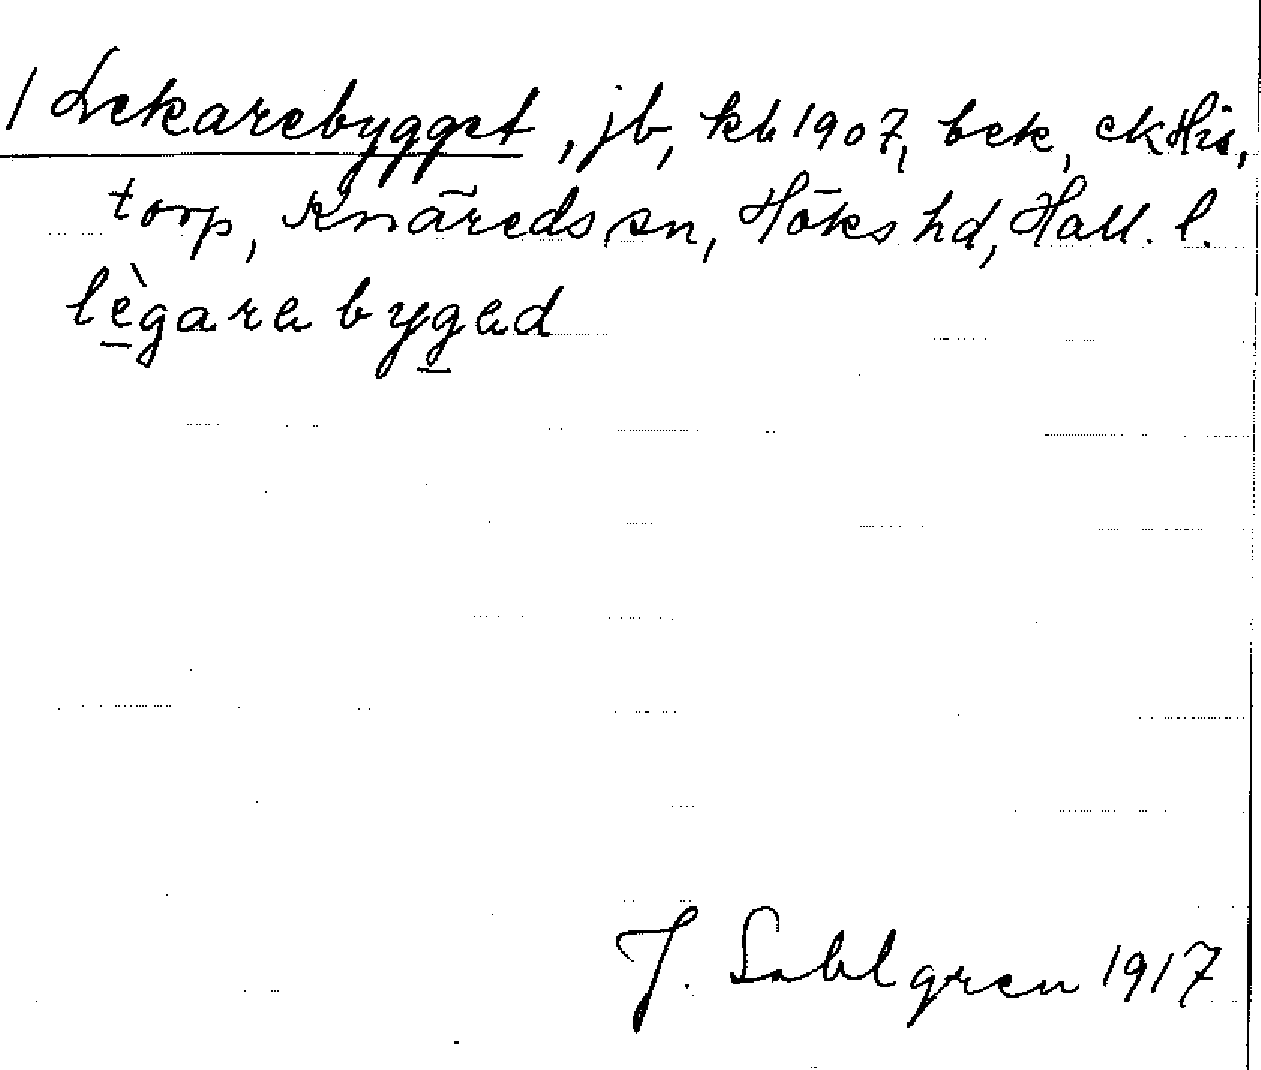 1 Lekarebygget, jb, kb 1907, bek, ek His,
torp, Knäreds sn, Höks hd, Hall. l.
lègarabygad
J. Sahlgren 1917